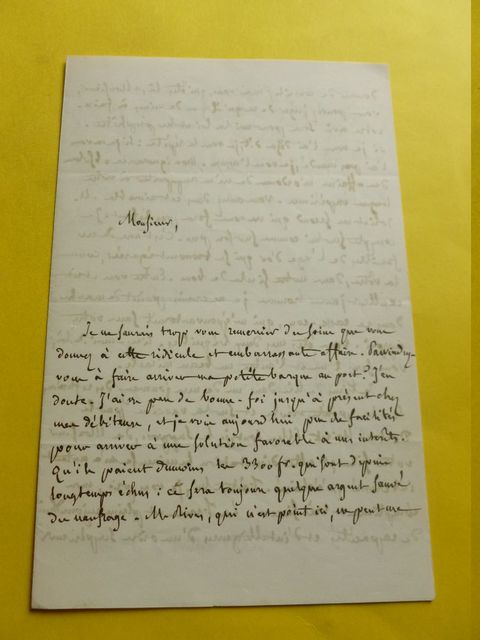 Monsieur,
Je ne saurais trop vous remercier du soin que vous
donnez à cette ridicule et embarrassante affaire. Parviendrez
vous à faire arriver ma petite barque au port? J'en
doute. J'ai vu peu de bonne-foi jusqu'à présent chez
mes débiteurs, et je vois aujourd'hui peu de facilités
pour arriver à une solution favorable à mes intérêts.
Qu'ils paient du moins les 3300 fr. qui sont depuis
longtemps échus: ce sera toujours quelque argent sauvé
du naufrage. Mr Rives, qui n'est point ici, ne peut me